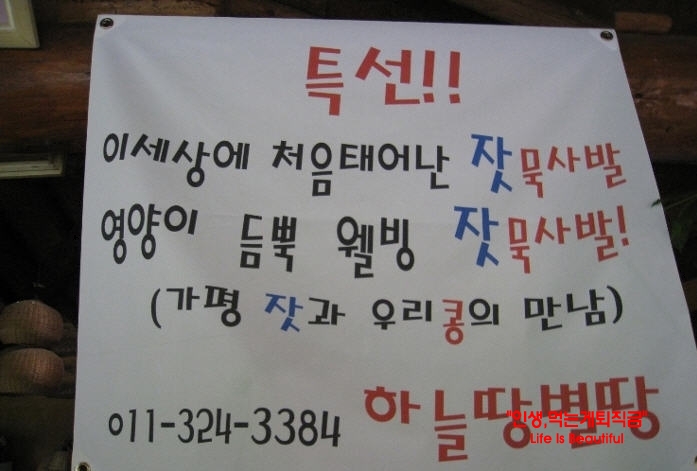 특선!!
이세상에 처음태어난 잣묵사발
영양이 듬뿍 웰빙 잣묵사발!
(가평 잣과 우리콩의 만남)
011-324-3384 하늘땅별땅
"인생,먹는게퇴직금"
Life Is Beautiful